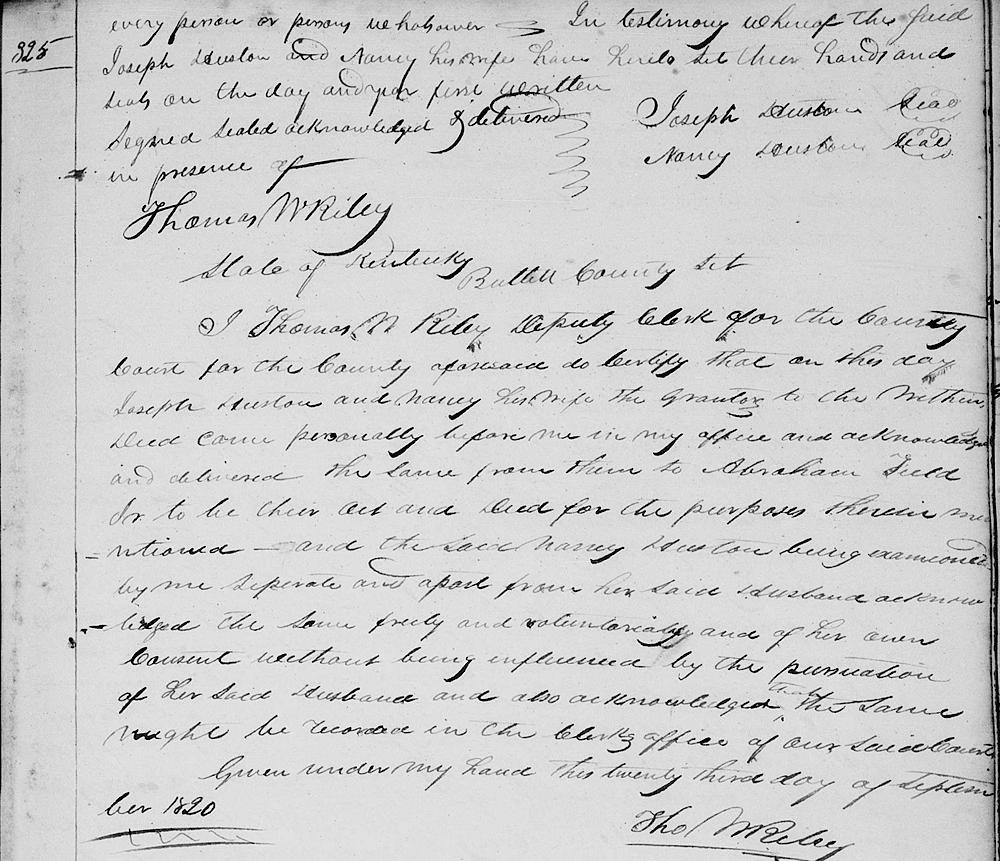 every person or persons whatsoever In testimony whereof the said
325
Joseph Huston and Nancy his wife have hereto set their hands and
seals on the day and year first written
Signed sealed acknowledged & delivered
in presence of
Joseph Huston Seal
Nancy Huston Seal
Thomas W Riley
State of Kentucky
Bullitt County Sct
I Thomas W Riley Deputy Clerk for the County
Court for the County aforesaid do Certify that on this day
Joseph Huston and Nancy his wife the Grantors to the Within
Deed came personally before me in my office and acknowledged
and delivered the same from them to Abraham Field
Jr. to be their act and Deed for the purposes therein me
ntioned and the said Nancy Huston being examoned
by me seperate and apart from her said Husband acknow
ledged the same freely and voluntarialy and of her own
Consent without being influenced by the persuation
of her said Husband and also acknowledged that the same
might be recorded in the Clerks office of our said County
Given under my hand this twenty third day of Septem
ber 1820
Tho W Riley